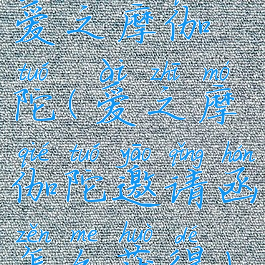 爱之摩伽
tuó ài zhī mó
陀(爱之摩
qié tuó yāo qǐng hán
伽陀邀请函
zěn me huò dé
怎么获得)